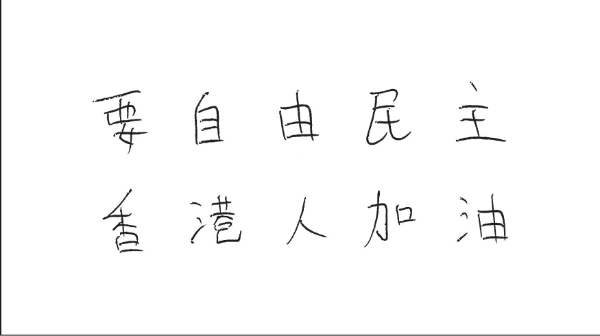 要自由民主
香港人加油